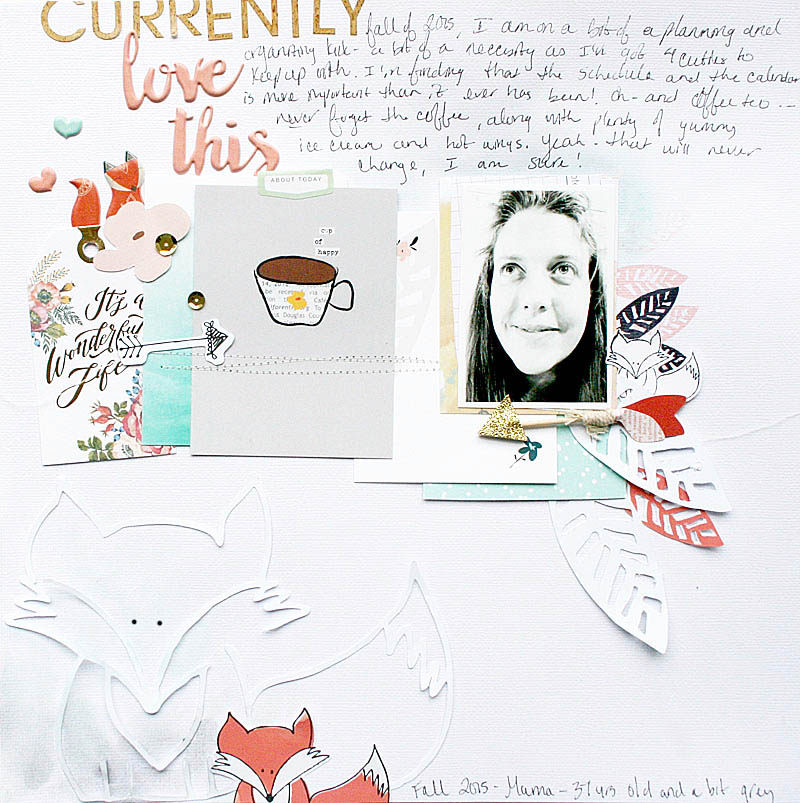 CURRENTLY
love
this
fall of 2015, I am on a bit of a planning and
organizing kick - a bit of a necessity as I'm got 4 cuties to
keep up with. I'm finding that the schedule and the calendar
is more important than it ever has been! Oh - and coffee too --
never forget the coffee, along with plenty of yummy
ice cream and hot wings. Yeah - that will never
change, I am sure!
ABOUT TODAY
cup
of
happy
14, 2012
be received via
Cafe
To
Douglas Cou
It's a
Wonderful
Life
Fall 2015 - Mama - 37 yrs old and a bit grey